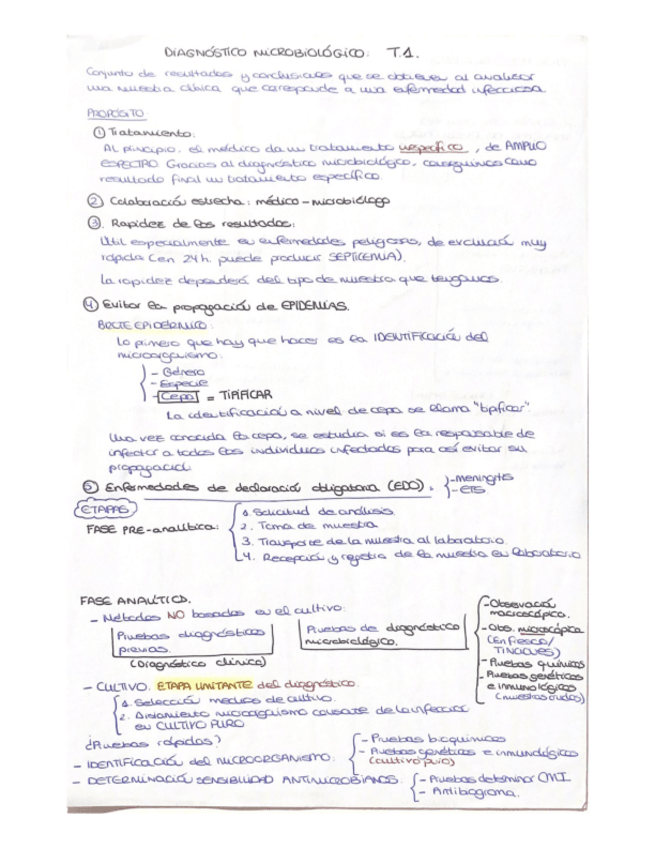 DIAGNÓSTICO MICROBIOLÓGICO: T.1.
Conjunto de resultados y conclusiones que se obtienen al analizar
una muestra clínica que corresponde a una enfermedad infecciosa.
PROPÓSITO
① Tratamiento:
Al principio, el médico da un tratamiento inespecífico, de AMPLIO
ESPECTRO. Gracias al diagnóstico microbiológico, conseguimos como
resultado final un tratamiento específico.
② Colaboración estrecha: médico-microbiólogo
③. Rapidez de los resultados:
Útil especialmente en enfermedades peligrosas, de evolución muy
rápida (en 24h. puede producir SEPTICEMIA).
La rapidez dependerá del tipo de muestra que tengamos.
④ Evitar la propagación de EPIDEMIAS.
BROTE EPIDÉRMICO:
Lo primero que hay que hacer es la IDENTIFICACIÓN del
microorganismo:
- Género
- Especie
- Cepa = TIPIFICAR
La identificación a nivel de cepa se llama "tipificar".
Una vez conocida la cepa, se estudia si es la responsable de
infectar a todos los individuos infectados para así evitar su
propagación.
⑤ Enfermedades de declaración obligatoria (EDO):
- Meningitis
- ETS
ETAPAS
FASE PRE-analítica:
1. Solicitud de análisis.
2. Toma de muestra
3. Transporte de la muestra al laboratorio.
4. Recepción y registro de la muestra en laboratorio
FASE ANALÍTICA.
- Métodos NO basados en el cultivo:
Pruebas diagnósticas
previas.
(Diagnóstico clínico)
Pruebas de diagnóstico
microbiológico.
- Observación
macroscópica.
- Obs. microscópica
(EN FRESCO/
TINCIONES)
- Pruebas químicas
- Pruebas genéticas
e inmunológicas
(muestras crudas)
- CULTIVO. ETAPA LIMITANTE del diagnóstico.
1. Selección medios de cultivo.
2. Aislamiento microorganismo causante de la infección
en CULTIVO PURO
¿Pruebas rápidas?
- IDENTIFICACIÓN del MICROORGANISMO:
- Pruebas bioquímicas
- Pruebas genéticas e inmunológicas
(cultivo puro)
- DETERMINACIÓN SENSIBILIDAD ANTIMICROBIANOS:
- Pruebas determinar CMI.
- Antibiograma.